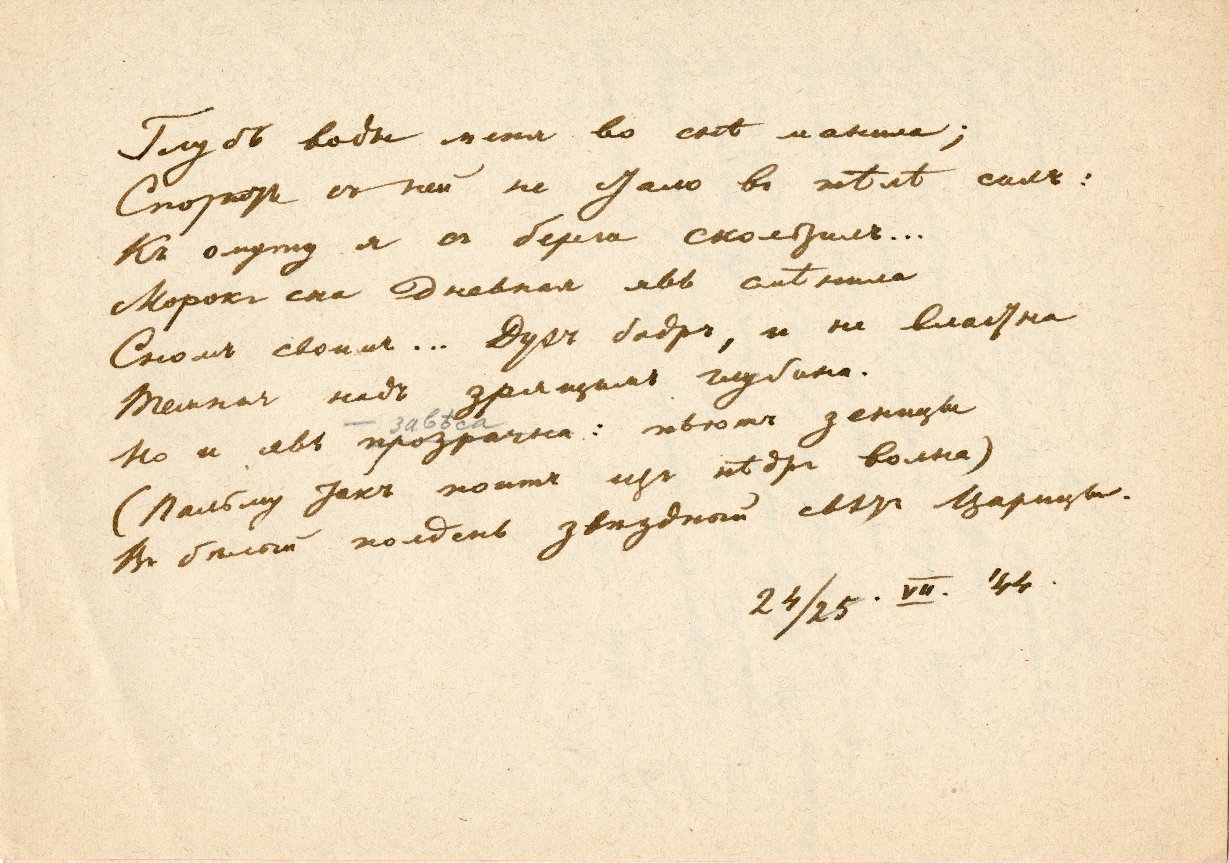 Глубь воды меня во снѣ манила;
Спорить съ ней не стало въ тѣлѣ силъ:
Къ омуту я съ берега скользилъ...
Морокъ сна дневная явь смѣнила
Сномъ своимъ... Духъ бодръ, и не властна
надъ зрящимъ глубина.
— завѣса
Но и явь прозрачна: пьютъ зеницы
(Пальму такъ поитъ изъ нѣдръ волна)
Въ бѣлый полдень звѣздный свѣтъ Царицы.
24/25. VII. '44.